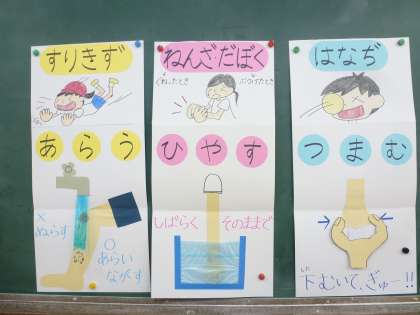 すりきず
あらう
×
ぬらす
○
あらい
ながす
ねんざ・だぼく
ぐねったとき
ぶつけたとき
ひやす
しばらく そのままで
はなぢ
つまむ
下むいて、ぎゅー!!